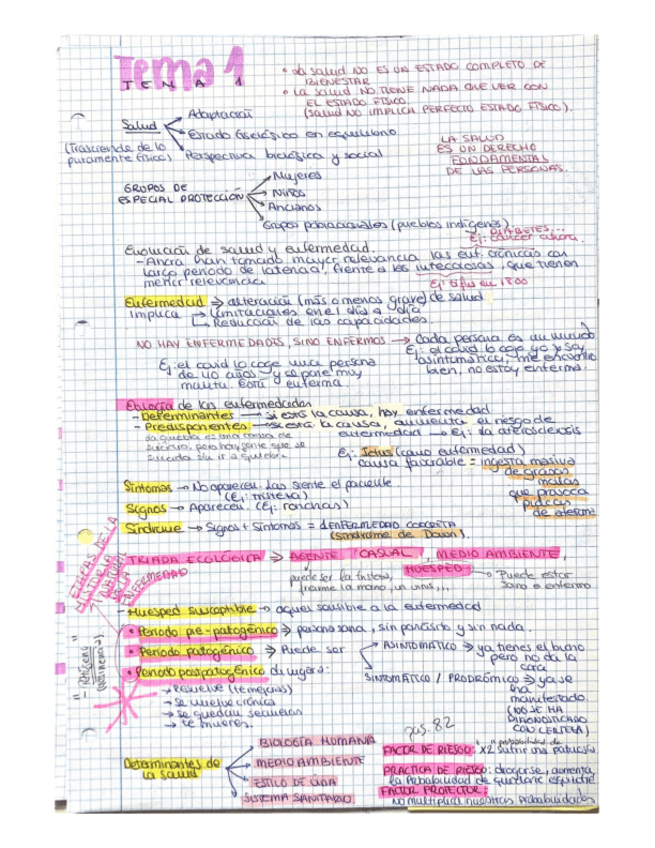 Tema 1
TEMA 1
• La salud NO ES UN ESTADO COMPLETO DE
BIENESTAR
• LA SALUD NO TIENE NADA QUE VER CON
EL ESTADO FÍSICO.
(SALUD NO IMPLICA PERFECTO ESTADO FÍSICO).
Salud
Adaptación
Estado fisiológico en equilibrio
Perspectiva biológica y social
(Trasciende de lo
puramente físico)
LA SALUD
ES UN DERECHO
FUNDAMENTAL
DE LAS PERSONAS.
GRUPOS DE
ESPECIAL PROTECCIÓN
Mujeres
Niños
Ancianos
Grupos poblacionales (pueblos indígenas)
DIABETES...
Ej: cáncer ahora.
Evolución de salud y enfermedad.
- Ahora han tomado mayor relevancia las enf. crónicas con
largo periodo de latencia, frente a las infecciosas, que tienen
menor relevancia.
Ej: tifus en 1800
Enfermedad → alteración (más o menos grave) de salud.
Implica → Limitaciones en el día a día
→ Reducción de las capacidades.
NO HAY ENFERMEDADES, SINO ENFERMOS → Cada persona es un mundo
Ej: el covid lo cojo yo y soy
asintomática, me encuentro
bien, no estoy enferma.
Ej: el covid lo coge una persona
de 40 años y se pone muy
malita. Está enferma.
Etiología de las enfermedades
- Determinantes → Si está la causa, hay enfermedad
- Predisponentes → si está la causa, aumenta el riesgo de
enfermedad → Ej: la aterosclerosis
suicida sin ir a quiebra.
Ej: Ictus (como enfermedad)
causa favorable = ingesta masiva
de grasas
malas
que provoca
placas
de ateroma
Síntomas → No aparecen. Las siente el paciente.
(Ej: tristeza)
Signos → Aparecen. (Ej: ronchas)
Síndrome → Signos + Síntomas = ENFERMEDAD CONCRETA
(Síndrome de Down).
ETAPAS DE LA
HISTORIA
NATURAL
DE LA
ENFERMEDAD
TRIADA ECOLÓGICA → AGENTE CASUAL, MEDIO AMBIENTE,
HUÉSPED
→ Puede estar
sano o enfermo
- Huésped susceptible → aquel sensible a la enfermedad
• Periodo pre-patogénico → persona sana, sin parásito y sin nada.
• Periodo patogénico → Puede ser
ASINTOMÁTICO → ya tienes el bicho
pero no da la
cara
SINTOMÁTICO / PRODRÓMICO → ya se
ha
manifestado.
(NO SE HA
DIAGNOSTICADO
CON CERTEZA)
• Periodo postpatogénico da lugar a:
→ Resuelve (te mejoras)
→ Se vuelve crónica
→ Se quedan secuelas
→ te mueres.
pag. 82
Determinantes de
la salud
BIOLOGÍA HUMANA
MEDIO AMBIENTE
ESTILO DE VIDA
SISTEMA SANITARIO
FACTOR DE RIESGO: x2 probabilidad de sufrir una patología
PRÁCTICA DE RIESGO: drogarse, aumenta
la probabilidad de
FACTOR PROTECTOR:
NO multiplica nuestras probabilidades